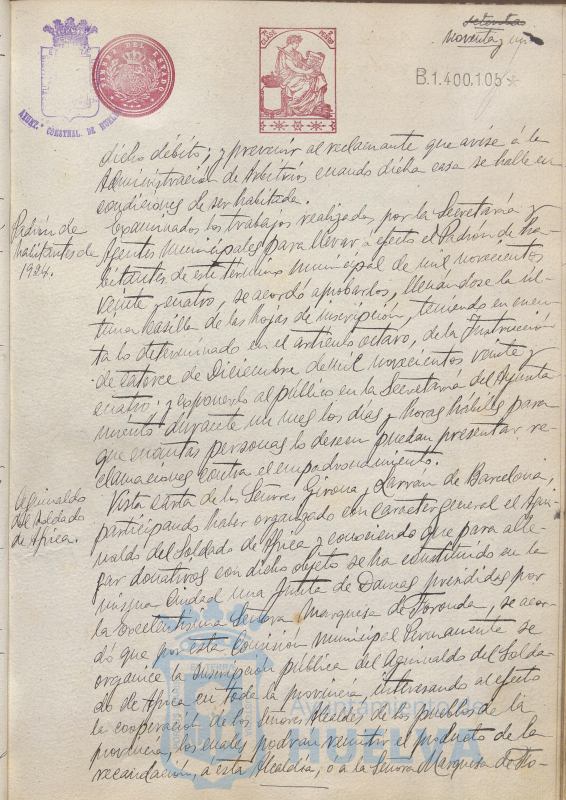 setenta
noventa y un
B.1.400.105
TIMBRE DEL ESTADO
7ª CLASE
AYUNT. CONSTNAL. DE HUELVA
dicho débito; y prevenir al reclamante que avise á la
Administración de Arbitrios cuando dicha casa se halle en
condiciones de ser habitada.
Padrón de
habitantes de
1924.
Examinados los trabajos realizados por la Secretaría y
Agentes Municipales para llevar á efecto el Padrón de ha-
bitantes de este término municipal de mil novecientos
veinte y cuatro, se acordó aprobarlos, llenándose la úl-
tima casilla de las hojas de inscripción, teniendo en cuen-
ta lo determinado en el artículo octavo, de la Instrucción
de catorce de Diciembre de mil novecientos veinte y
cuatro; y exponerlo al público en la Secretaría del Ayunta
miento durante un mes los días y horas hábiles para
que cuantas personas lo deseen puedan presentar re-
clamaciones contra el empadronamiento.
Aguinaldo
del Soldado
de Africa.
Vista carta de los Señores Girona y Larran de Barcelona,
participando haber organizado con caracter general el Agui
naldo del Soldado de Africa y conociendo que para alle-
gar donativos con dicho objeto se ha constituido en la
misma Ciudad una Junta de Damas presididas por
la Excelentísima Señora Marquesa de Foronda, se acor-
dó que por esta Comisión Municipal Permanente se
organice la suscripción pública del Aguinaldo del Solda-
do de Africa en toda la provincia interesando al efecto
la cooperación de los Señores Alcaldes de los pueblos de la
provincia, los cuales podrán remitir el producto de la
recaudación, á esta Alcaldía, o a la Señora Marquesa de Fo-
Ayuntamiento de
HUELVA